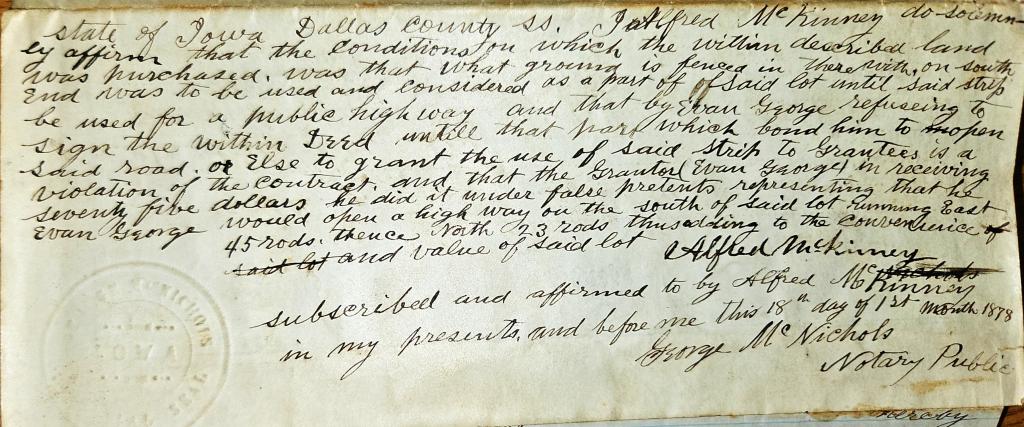 state of Iowa Dallas County ss. I Alfred McKinney do solemn-
ly affirm that the conditions on which the within described land
was purchased. was that what ground is fenced in therewith, on south
End was to be used and considered as a part of of said lot until said strip
be used for a public high way and that by Evan George refuseing to
sign the within Deed untill that part which bond him to open
said road. or Else to grant the use of said strip to Grantees is a
violation of the contract. and that the Grantor Evan George in receiving
seventy five dollars he did it under false pretents representing that he
Evan George would open a high way on the south of said lot running East
45 rods. thence North 23 rods thus adding to the convenience of
said lot and value of said lot Alfred McKinney
subscribed and affirmed to by Alfred McKinney
in my presents, and before me this 18th day of 1st month 1878
George McNichols
Notary Public
MCNICHOLS
IOWA
SEAL
hereby